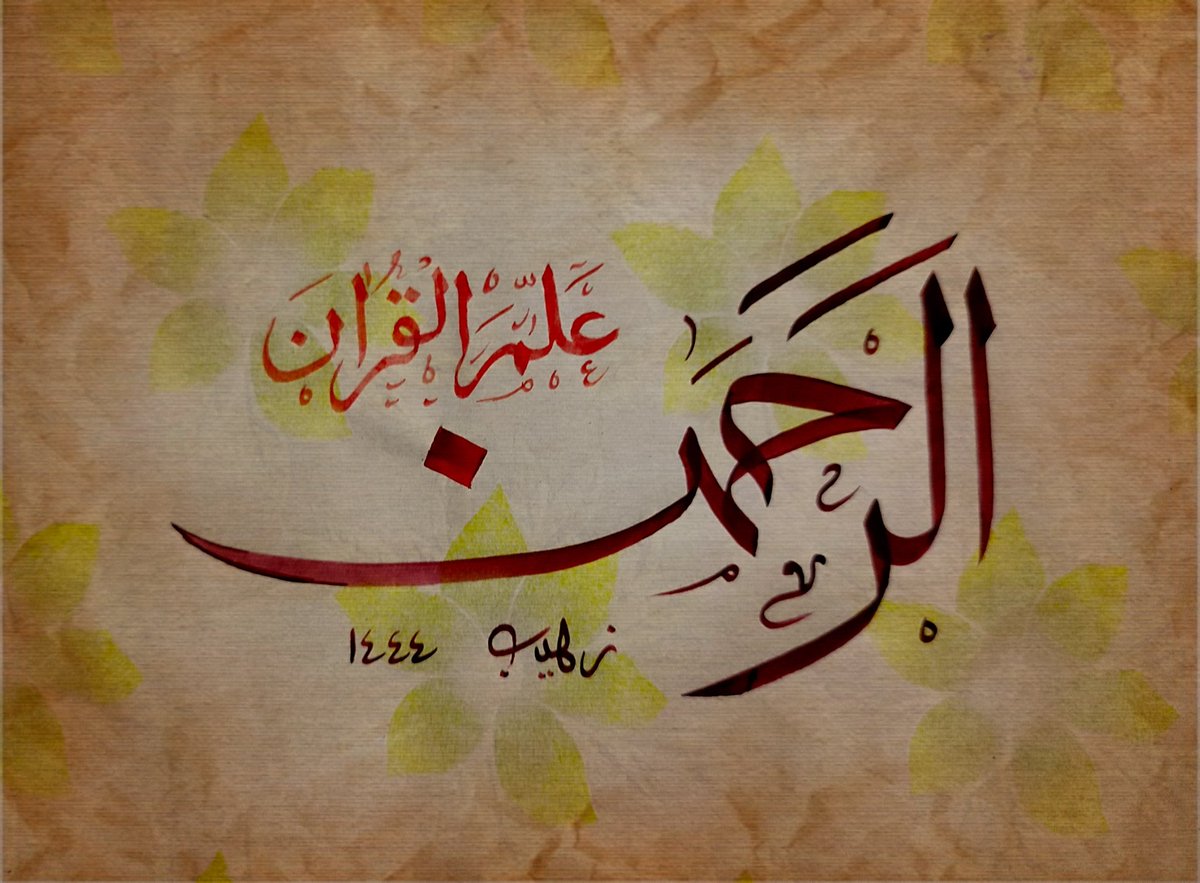 الرحمن
علم القران
زهيب ١٤٤٤